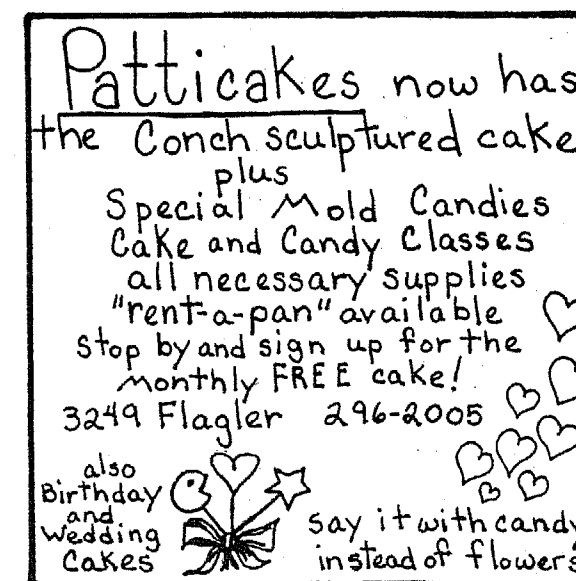 Patticakes now has
the Conch sculptured cake
plus
Special Mold Candies
Cake and Candy Classes
all necessary supplies
"rent-a-pan" available
Stop by and sign up for the
monthly FREE cake!
3249 Flagler 296-2005
also
Birthday
and
Wedding
Cakes
say it with candy
instead of flowers